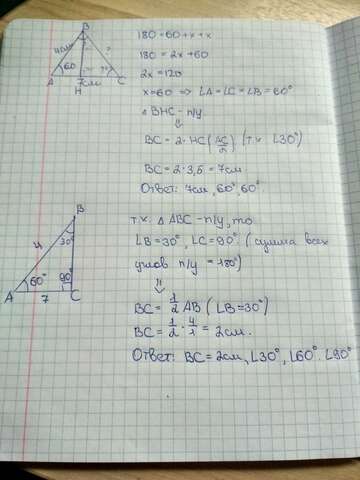 B
4см
?
60
?°
A 7см C
H
180=60+x+x
180=2x+60
2x=120
x=60 ⇒ ∠A=∠C=∠B=60°
△BHC-п/у
⇓
BC=2·HC(AC/2) (т.к ∠30°)
BC=2·3,5=7см
Ответ: 7см, 60°, 60°.
B
4
30°
60° 90°
A 7 C
т.к. △ABC-п/у, то
∠B=30°, ∠C=90° (сумма всех
углов п/у=180°)
⇓
BC=1/2 AB (∠B=30°)
BC=1/2·4/1=2см.
Ответ: BC=2см, ∠30°, ∠60°. ∠90°